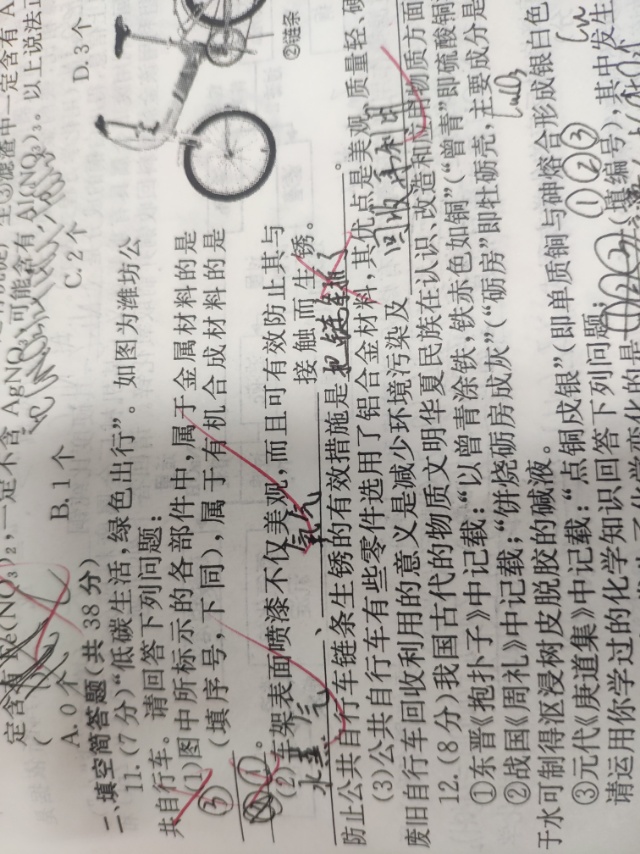 定含有Fe(NO₃)₂,一定不含AgNO₃,可能含有Al(NO₃)₃。以上说法正
A. 0个 B. 1个 C. 2个 D. 3个
二、填空简答题(共38分)
11. (7分)“低碳生活,绿色出行”。如图为潍坊公
共自行车。请回答下列问题:
(1)图中所标示的各部件中,属于金属材料的是
③ (填序号,下同),属于有机合成材料的是
。
(2)车架表面喷漆不仅美观,而且可有效防止其与
水蒸气、氧气接触而生锈。
防止公共自行车链条生锈的有效措施是
②链条
(3)公共自行车有些零件选用了铝合金材料,其优点是美观、质量轻、硬
废旧自行车回收利用的意义是减少环境污染及回收再利用。
12. (8分)我国古代的物质文明华夏民族在认识、改造和应用物质方面
①东晋《抱扑子》中记载:“以曾青涂铁,铁赤色如铜”(“曾青”即硫酸铜
②战国《周礼》中记载;“饼烧砺房成灰”(“砺房”即牡砺壳,主要成分是
CaCO₃
于水可制得沤浸树皮脱胶的碱液。
③元代《庚道集》中记载:“点铜成银”(即单质铜与砷熔合形成银白色
请运用你学过的化学知识回答下列问题:
①②③
(填编号),其中发生